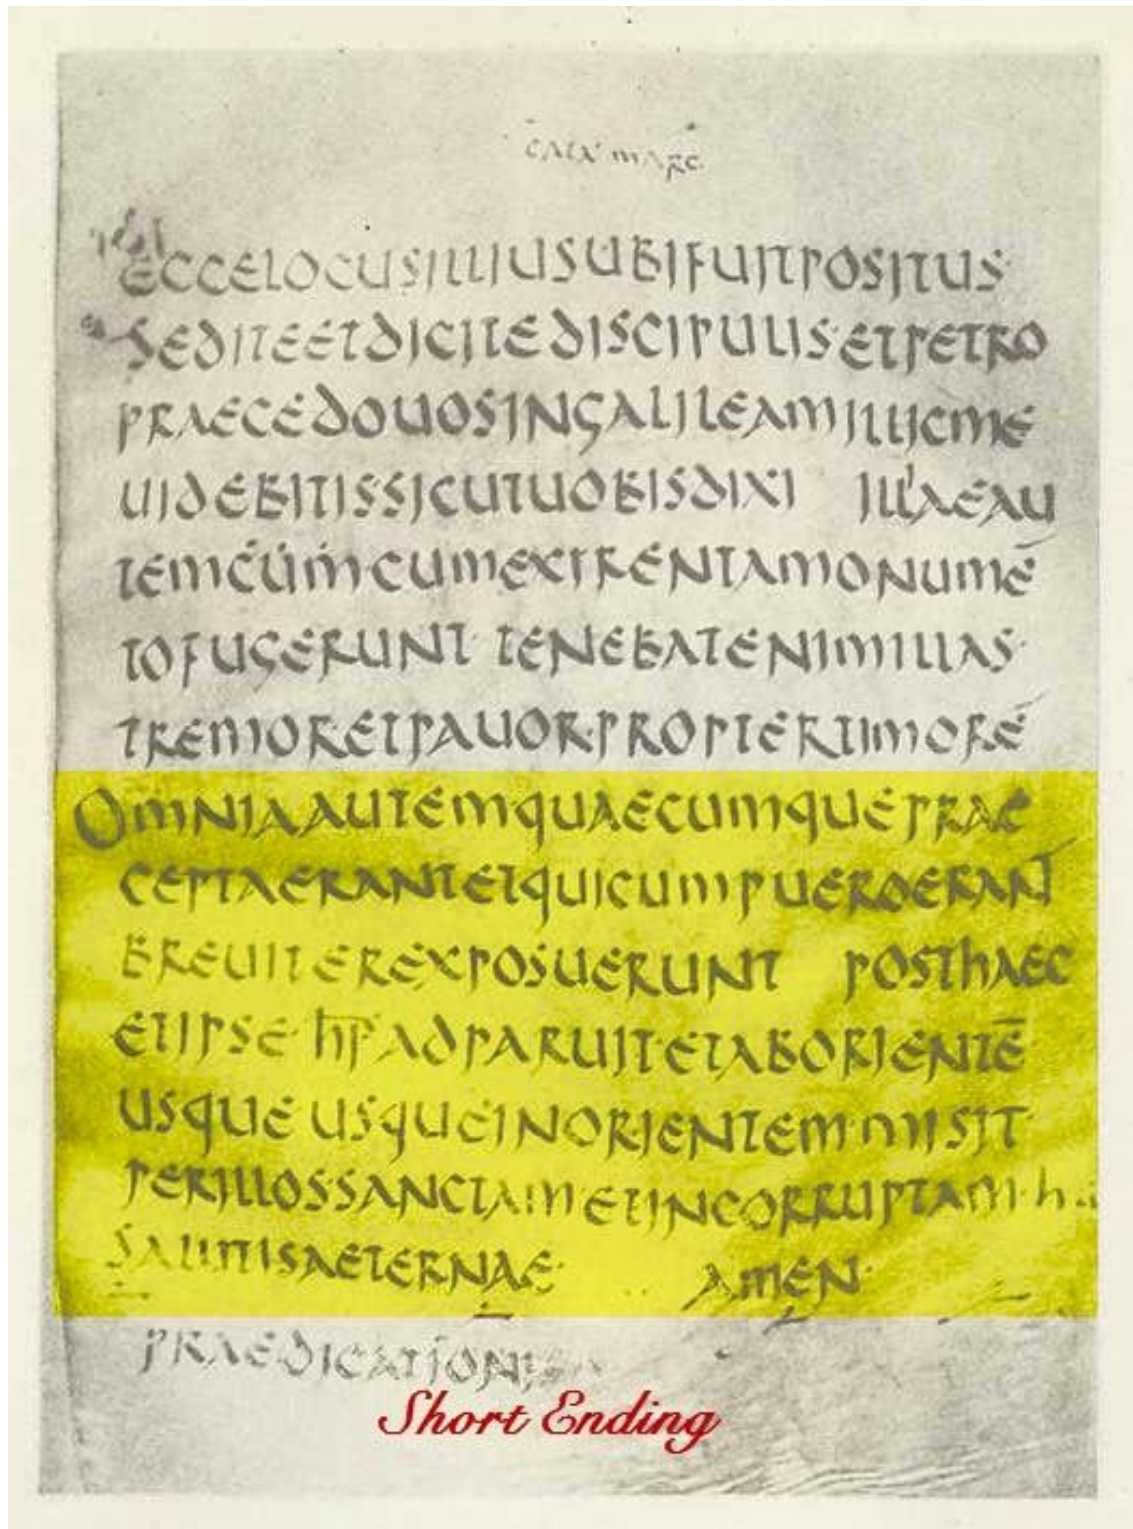 CATA MARC
ECCELOCUSILLIUSUBIFUITPOSITUS·
SEDITEETDICITEDISCIPULIS·ETPETRO
PRAECEDOUOSINGALILEAMILLICME
UIDEBITISSICUTUOBISDIXI ILLAEAU
TEMCUMCUMEXIRENTAMONUMĒ
TOFUGERUNT· TENEBATENIMILLAS·
TREMORETPAUOR·PROPTERTIMORĒ
OMNIAAUTEMQUAECUMQUEPRAE
CEPTAERANTETQUICUMPUEROERANT
BREUITEREXPOSUERUNT POSTHAEC
ETIPSE· ADPARUIT·ETABORIENTĒ
USQUE USQUEINORIENTEM·MISIT·
PERILLOSSANCTAMETINCORRUPTAM·
SALUTISAETERNAE· AMEN·
PRAEDICATIONIS
Short Ending